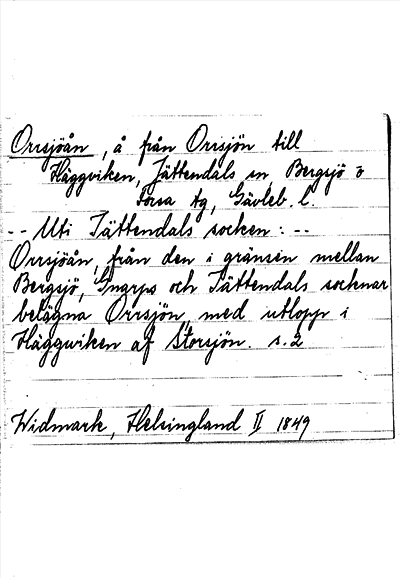 Orrsjöån, å från Orrsjön till
Häggviken, Jättendals sn, Bergsjö o
Forsa tg, Gävleb. l.
-- Uti Jättendals socken: --
Orrsjöån, från den i gränsen mellan
Bergsjö, Gnarps och Jättendals socknar
belägna Orrsjön, med utlopp i
Häggwiken af Storsjön. s. 2
Widmark, Helsingland II 1849